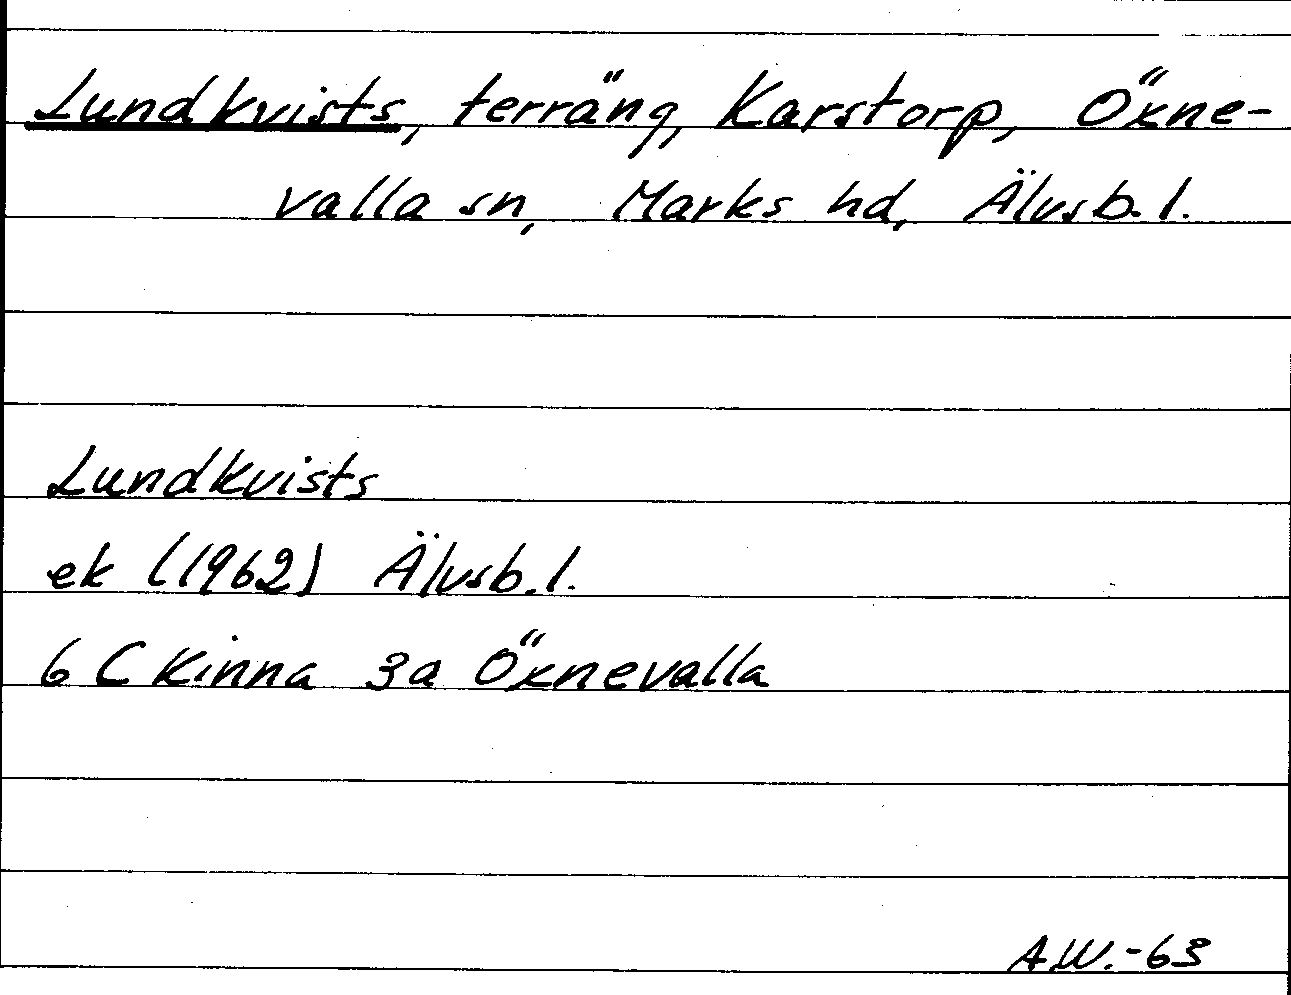 Lundkvists, terräng, Karstorp, Öxne-
valla sn, Marks hd, Älvsb. l.
Lundkvists
ek (1962) Älvsb. l.
6 C Kinna 3a Öxnevalla
A.W.-63